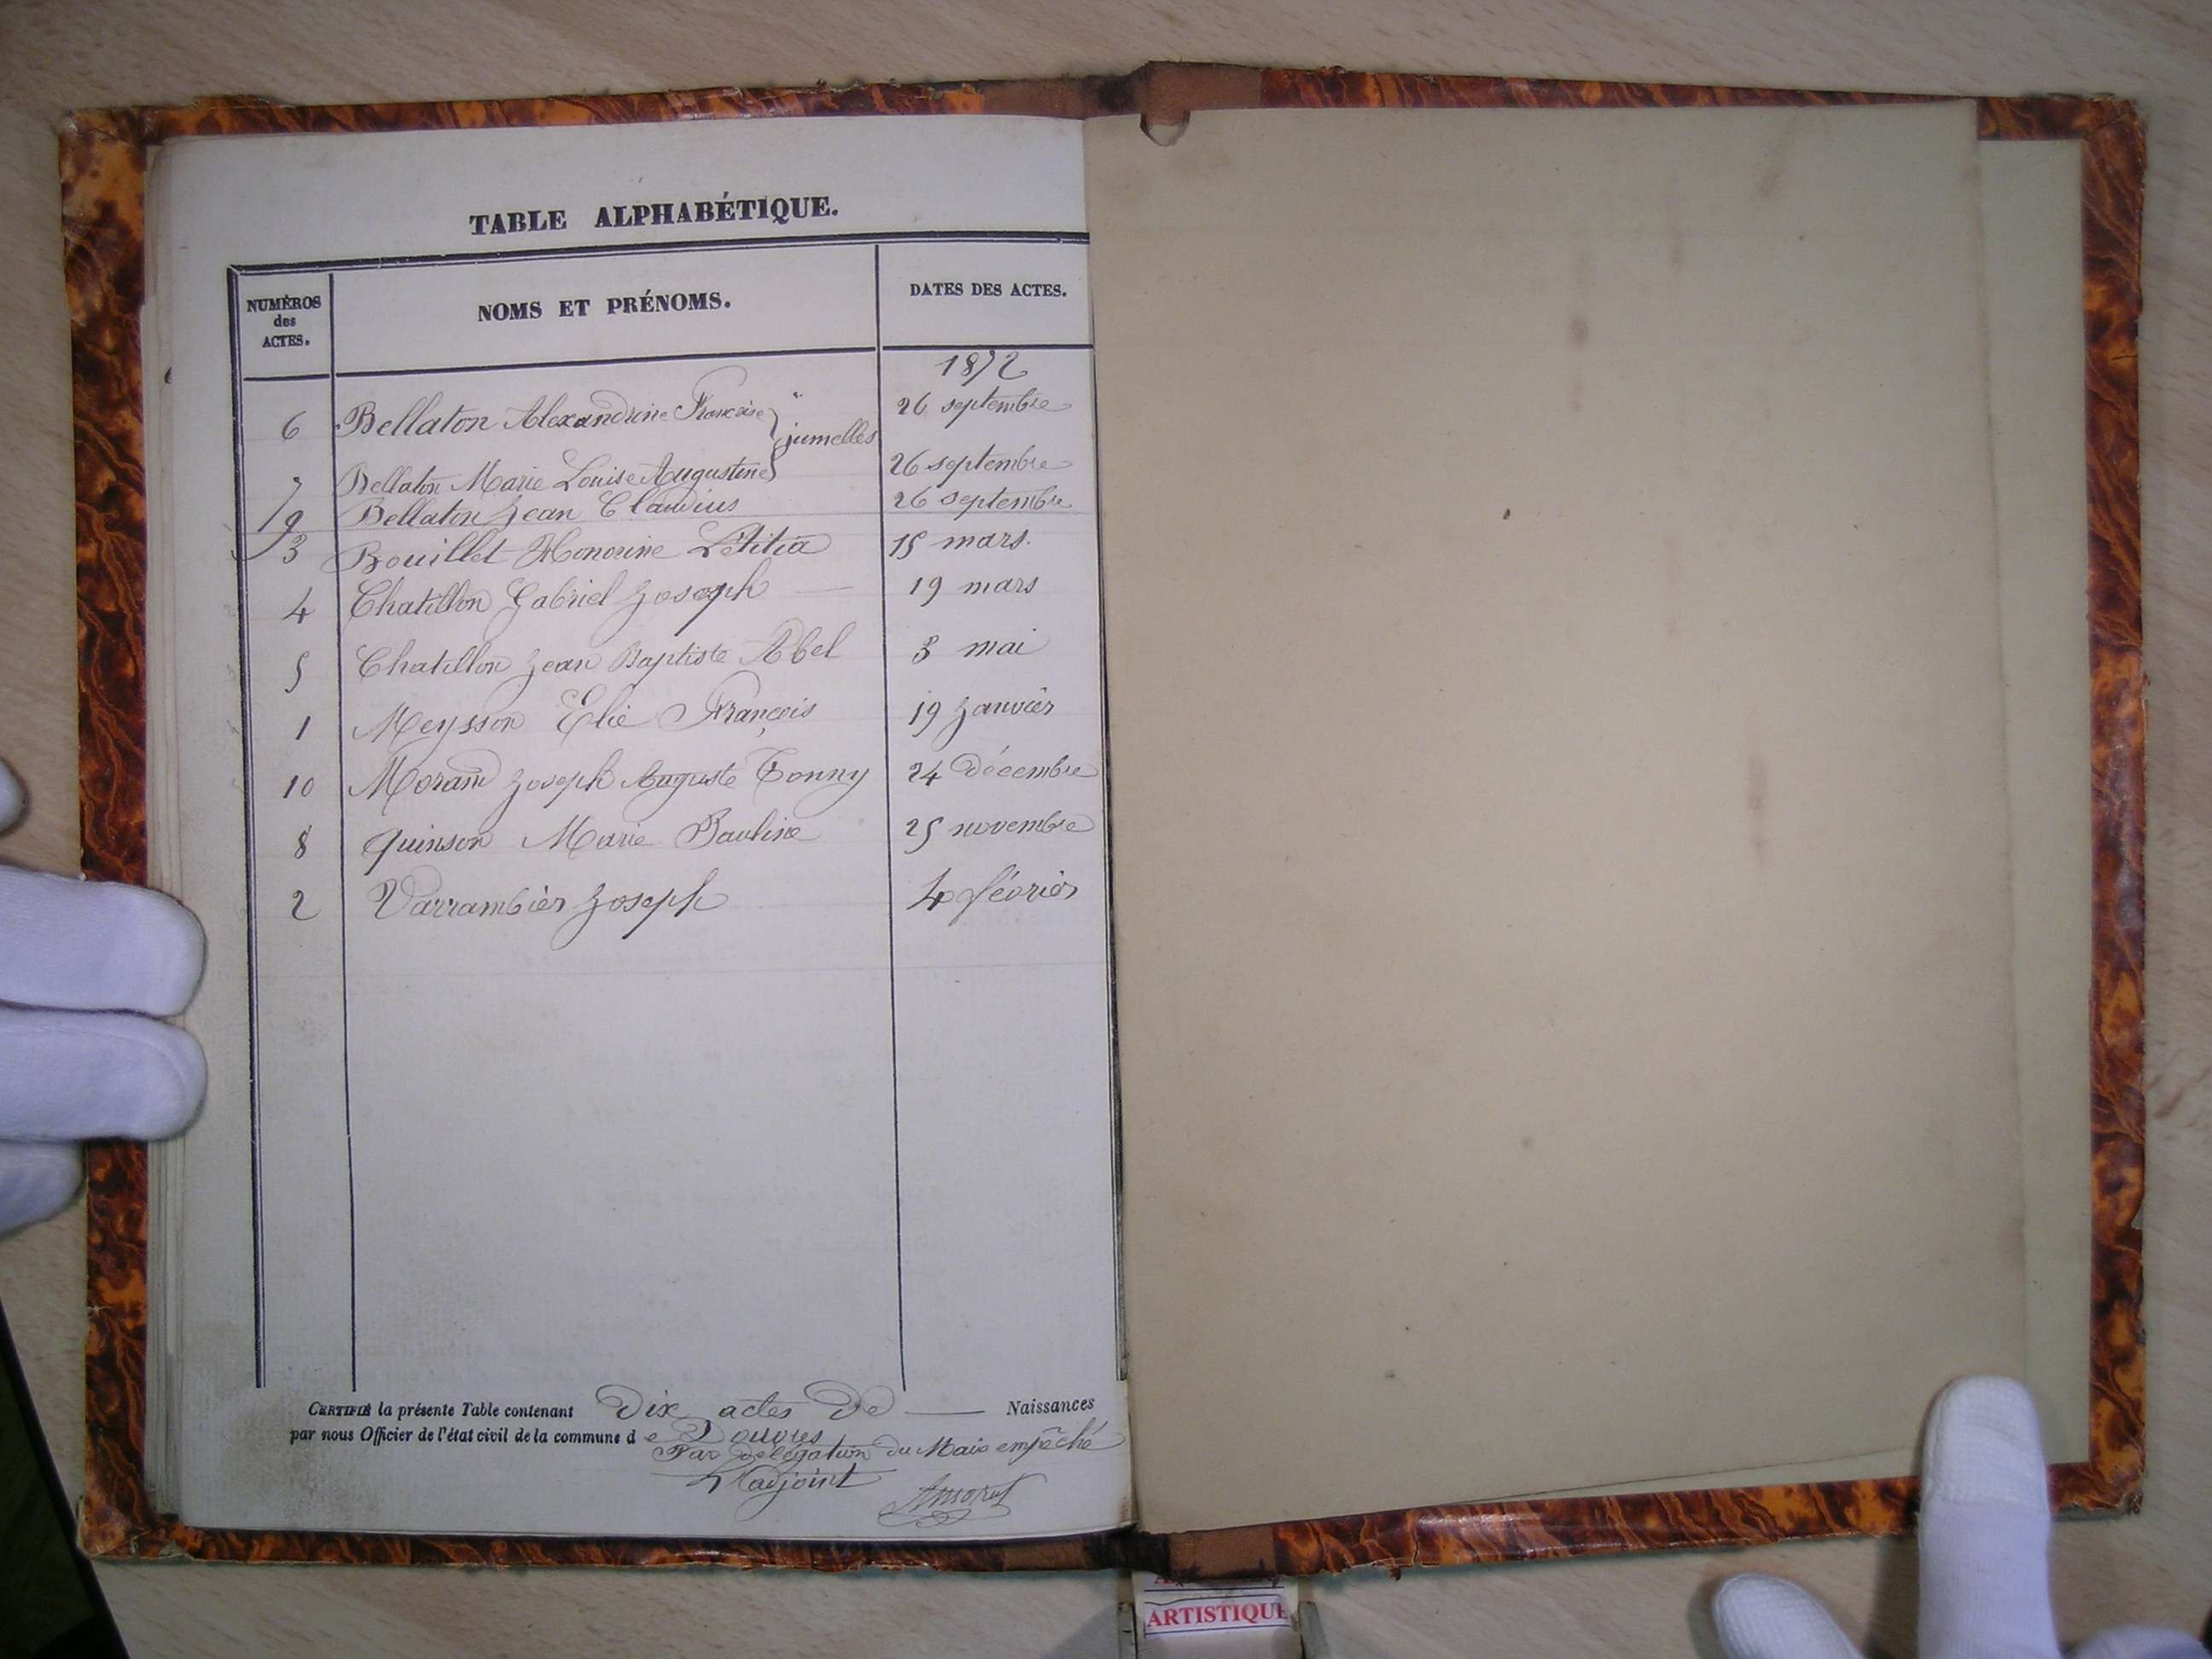 TABLE ALPHABÉTIQUE.
NUMÉROS des ACTES. NOMS ET PRÉNOMS. DATES DES ACTES.
1872
6 Bellaton Alexandrine Francoise } jumelles 26 septembre
7 Bellaton Marie Louise Augustine 26 septembre
9 Bellaton Jean Claudius 26 septembre
3 Bouillet Honorine Létitia 15 mars.
4 Chatillon Gabriel Joseph — 19 mars
5 Chatillon Jean Baptiste Abel 3 mai
1 Meysson Elie François 19 Janvier
10 Morand Joseph Auguste Tonny 24 décembre
8 Quinson Marie Pauline 25 novembre
2 Varrambier Joseph 4 février
CERTIFIÉ la présente Table contenant Dix actes de — Naissances
par nous Officier de l'état civil de la commune de Douvres
Par délégation du Maire empêché
L'adjoint
ARTISTIQUE